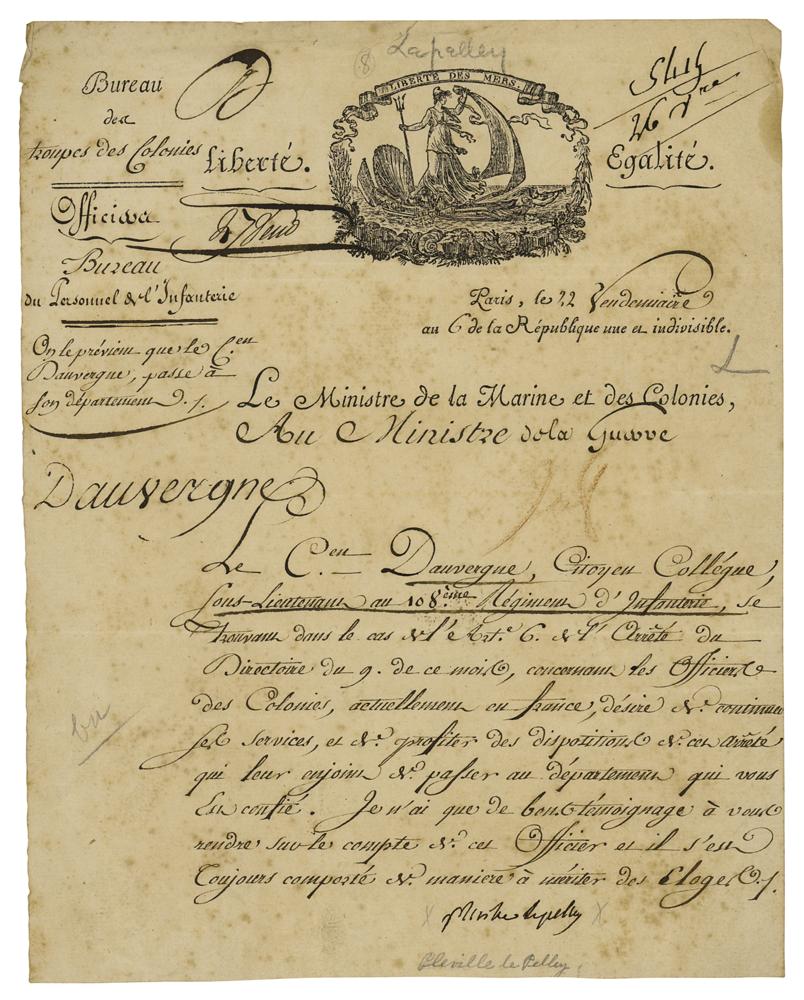 8
Lapelley
LIBERTÉ DES MERS.
Bureau
des
troupes des Colonies
Liberté.
Egalité.
5415
26 Vre
Officiers
27 Vend
Bureau
du Personnel de l'Infanterie
On le prévient que le C.en
Dauvergne, passe à
son département ./.
Paris, le 22 Vendemiaire
au 6 de la République une et indivisible.
Le Ministre de la Marine et des Colonies,
Au Ministre de la Guerre
Dauvergne
Le C.en Dauvergne, Citoyen Collégue,
sous-Lieutenant au 108.ème Régiment d'Infanterie, se
trouvant dans le cas de l'Art.e 6. de l'Arrêté du
Directoire du 9. de ce mois, concernant les Officiers
des Colonies, actuellement en france, désire de continuer
ses services, et de profiter des dispositions de cet arrêté
qui leur enjoint de passer au département qui vous
Est confié. Je n'ai que de bons témoignage à vous
rendre sur le compte de cet Officier et il s'est
Toujours comporté de maniere à mériter des Eloges ./.
bu
pleville lepelley
Pleville le Pelley.